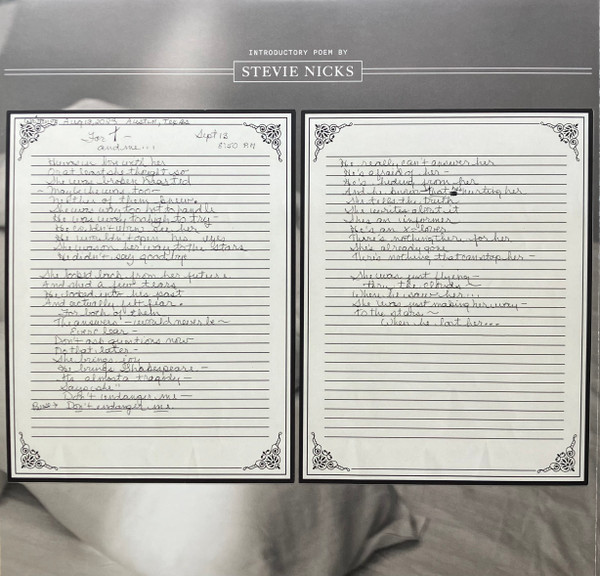 INTRODUCTORY POEM BY
STEVIE NICKS
Aug 13, 2023 Austin, Texas
For T —
and me...
Sept 13
He was in love with her
Or at least she thought so
She was broken hearted
— Maybe he was too —
Neither of them knew
She was way too hot to handle
He was way too high to try —
He couldn't even see her
He wouldn't open his eyes
She was on her way to the stars
He didn't say goodbye
She looked back from her future
And shed a few tears
He looked into his past
And actually felt fear.
For both of them
The answers — would never be ~
Ever clear —
Don't ask questions now
Do that later —
She brings joy
He brings Shakespeare —
It's almost a tragedy —
Says she"
Don't endanger me —
Don't endanger me.
He really can't answer her
He's afraid of her —
He's hiding from her
And he knows that he's hurting her
She tells the truth
She writes about it
She's an informer
He's an x-lover
There's nothing there for her
She's already gone
There's nothing that can stop her —
She was just flying —
thru the clouds ~
When he saw her...
She was just making her way —
To the stars ~
When he lost her...